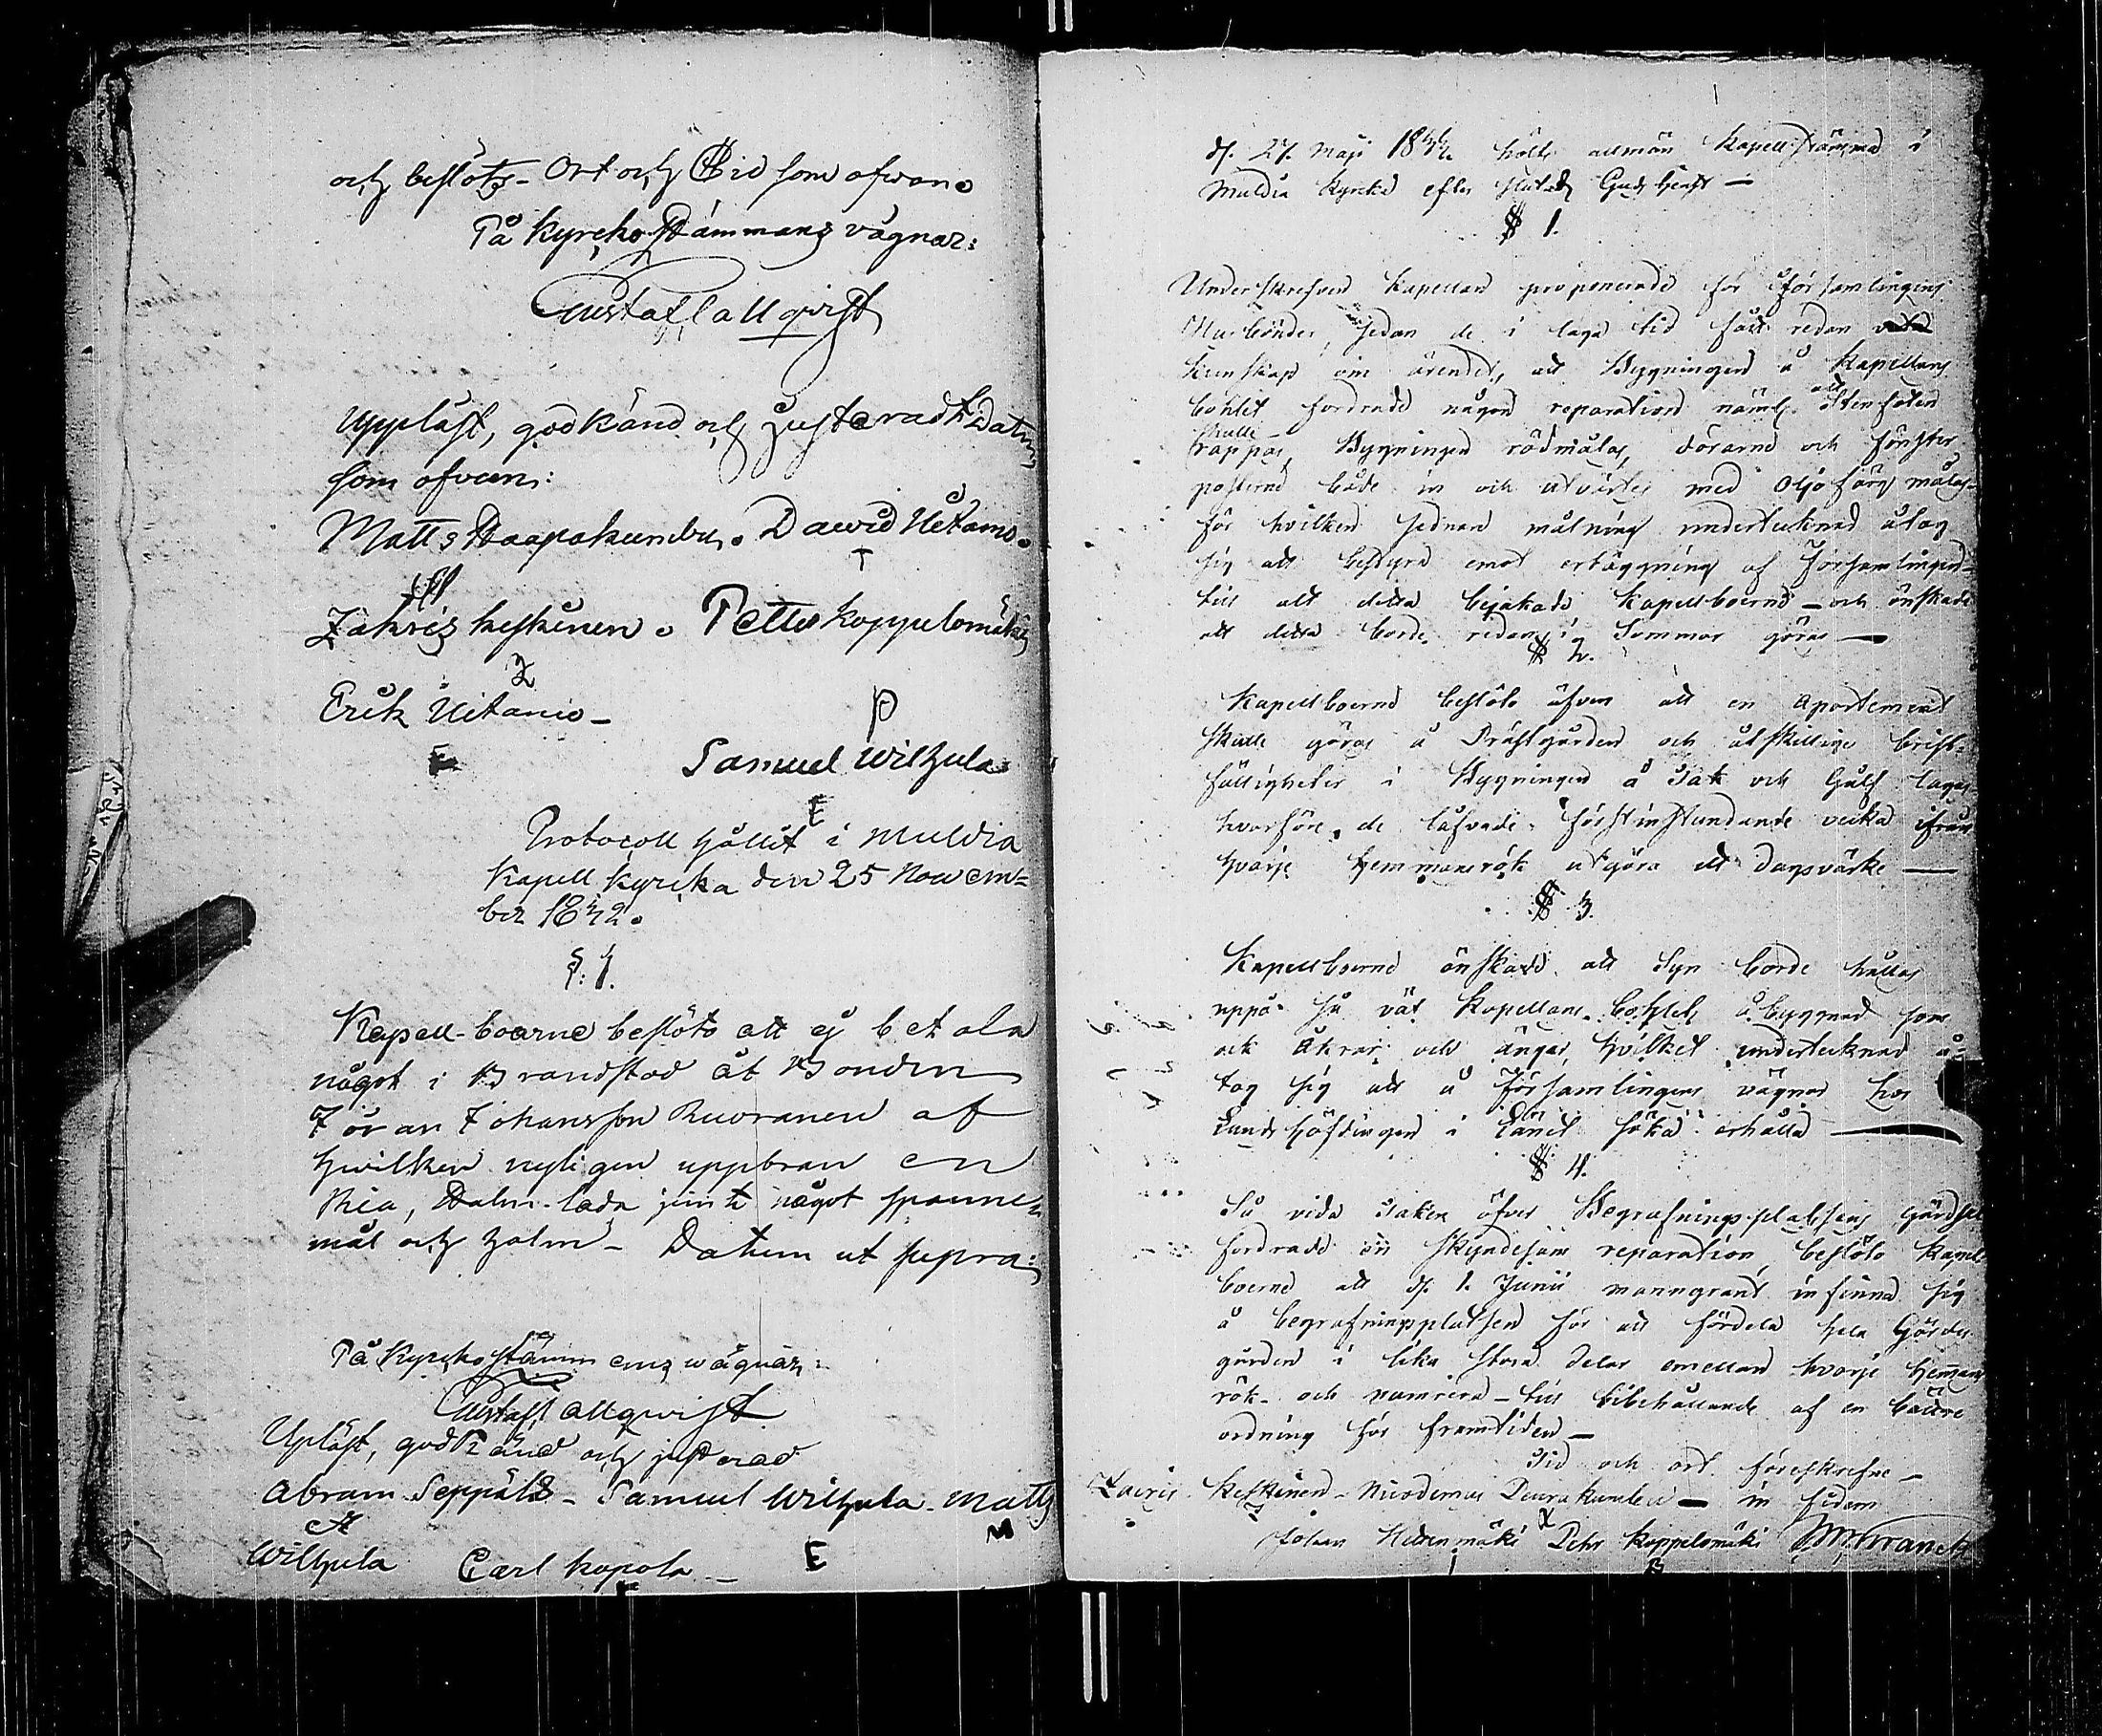 och beslöts. Ort och Tid som ofwan.
På Kyrcko Stämmans vägnar:
Gustaf Callqvist
Uppläst, godkänd och justerad Datum
som ofvan:
Matts Haapakumbu. Dawid Uitamo.
Zakris Keskinen. Petter Koppelomäki
Erik Uitamo
P
E
Samuel Wilhula
E
Protocoll hållit i Muldia
Kapell Kyrcka den 25 Novem=
ber 1842.
§: 1.
Kapell-boarne beslöto att ej betala
något i Brandstod åt Bonden
Jöran Johansson Ruoranen af
hwilken nyligen uppbran en
Ria, Halm-lada jämte något spanne-
mål och halm. Datum ut supra:
På Kyrckostämmans wägnar:
Gustaf Callqvist
Upläst, godkänd och justerad
Abram Seppälä - Samuel Wilhula - Matts
M
Wilhula Carl Kapola
E
d. 27. Maji 1844 hölts allmän Kapell stämma i
Muldia Kyrcka efter slutad Gudstjenst —
§ 1.
Underskrefven Kapellan proponerade för Församlingens
Närboende, sedan de i laga tid fådt redan
kunskap om ärendet, att Byggningen å Kapellans
bohlet fordrade någon reparation näml. att stenfoten
skulle
rappas, Byggningen rödmålas, dörarne och fönster
posterne både in och utvärtes med Oljefärg målas
för hvilken sednare målning undertecknad åtog
sig att bestyra emot ertäggning af Församlingen
till allt detta bejakade Kapellboerne – och önskade
att detta borde redan i Sommar göras —
§ 2.
Kapellboerne beslöto äfven att en Apartement
skulle göras å Prästgården och åtskillige brist-
fälligheter i Byggningen å Tak och Golf lagas
hvarföre de låfvade förstinstundande vecka ifrån
hvarje Hemmansrök utgöra ett dagsvärke —
§ 3.
Kapellboerne önskade att Syn borde hållas
uppå så väl Kapellans bohlets åbyggnad som
ock Åkrar och ängar, hvilket undertecknad å-
tog sig att å Församlingens vägnar hos
Landshöfdingen i Länet söka erhålla —
§ 4.
Så vida Taken öfver Begrafningsplatsens Gärdsel
fordrade en skyndesam reparation, beslöto Kapell
boerne att d. 1. Junii manngrant infinna sig
å begrafningsplatsen för att fördela hela Gärdes
gården i lika stora delar emellan hvarje Hemmans
rök och numrera – till bibehållande af en bättre
ordning för framtiden —
Tid och ort föreskrefne —
Zacris Keskinen - Nicodemus Peurakumbu — in fidem
X
Johan Hedenmäki Pehr Koppelomäki